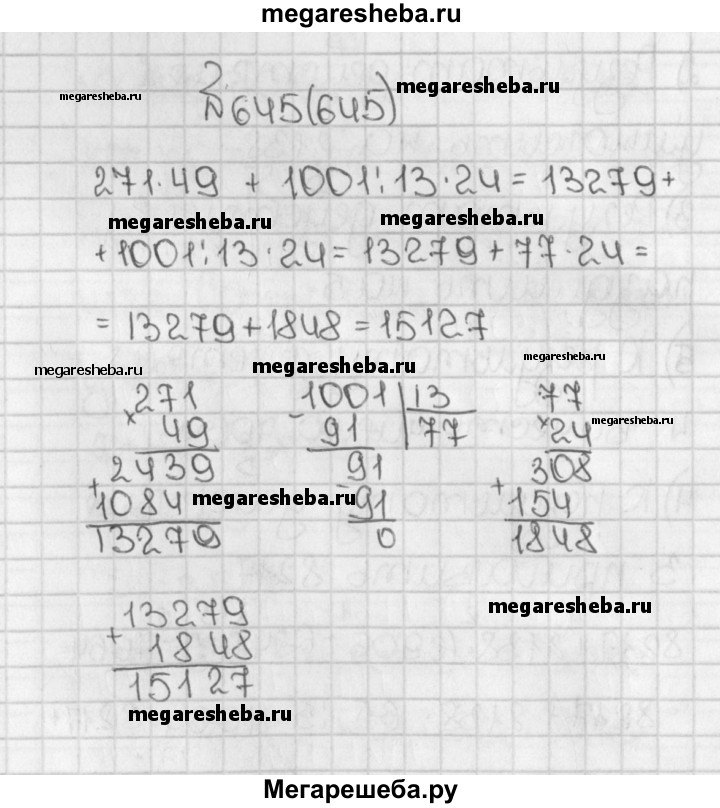 megaresheba.ru
megaresheba.ru №645(645) megaresheba.ru
271·49 + 1001:13·24=13279+
megaresheba.ru megaresheba.ru
+1001:13·24=13279+77·24=
=13279+1848=15127
megaresheba.ru megaresheba.ru megaresheba.ru
271 1001 13 77
× 49 - 91 77 × 24 megaresheba.ru
2439 91 308
+ 1084 megaresheba.ru - 91 + 154
13279 0 1848
13279 megaresheba.ru
+ 1848
15127
megaresheba.ru
Мегарешеба.ру